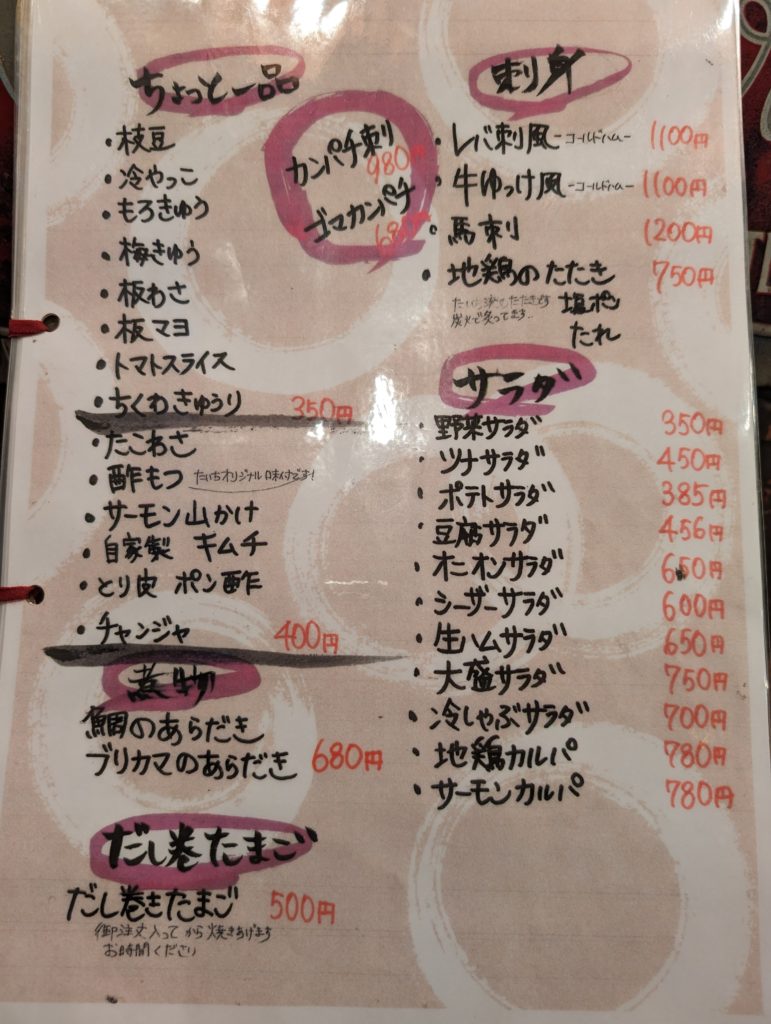 ちょっと一品
・枝豆
・冷やっこ
・もろきゅう
・梅きゅう
・板わさ
・板マヨ
・トマトスライス
・ちくわきゅうり 350円
・たこわさ
・酢もつ たいちオリジナル味付です!
・サーモン山かけ
・自家製 キムチ
・とり皮 ポン酢
・チャンジャ 400円
カンパチ刺
980円
ゴマカンパチ
680円
煮物
鯛のあらだき
ブリカマのあらだき 680円
だし巻たまご
だし巻きたまご 500円
御注文入ってから焼きあげます
お時間ください
刺身
・レバ刺風 -コールドハム- 1100円
・牛ゆっけ風 -コールドハム- 1100円
・馬刺 1200円
・地鶏のたたき 750円
たたきです 塩ポン
炭火で炙ってます.. たれ
サラダ
・野菜サラダ 350円
・ツナサラダ 450円
・ポテトサラダ 385円
・豆腐サラダ 456円
・オニオンサラダ 650円
・シーザーサラダ 600円
・生ハムサラダ 650円
・大盛サラダ 750円
・冷しゃぶサラダ 700円
・地鶏カルパ 780円
・サーモンカルパ 780円